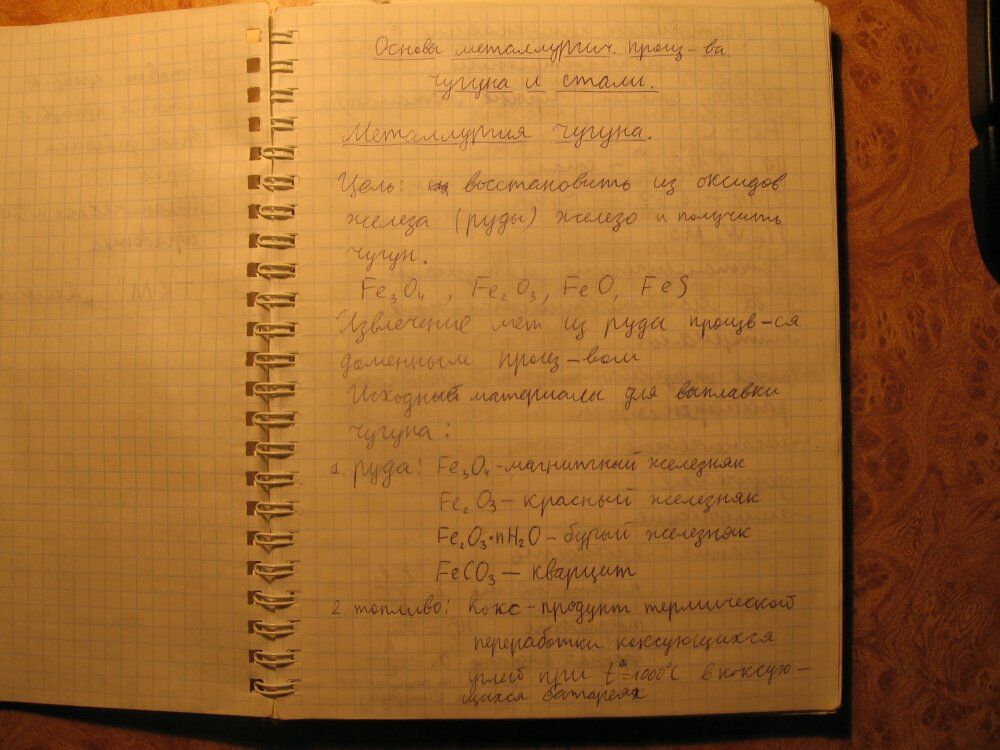 Основы металлургич. произ-ва
чугуна и стали.
Металлургия чугуна.
Цель: восстановить из оксидов
железа (руды) железо и получить
чугун.
Fe₃O₄, Fe₂O₃, FeO, FeS
Извлечение мет из руда произв-ся
доменным произ-вом
Исходный материалы для выплавки
чугуна:
1. руда: Fe₃O₄-магнитный железняк
Fe₂O₃ — красный железняк
Fe₂O₃·nH₂O — бурый железняк
FeCO₃ — кварцит
2. топливо: Кокс - продукт термической
переработки коксующихся
углей при t°=1000°C в коксую-
щихся батареях